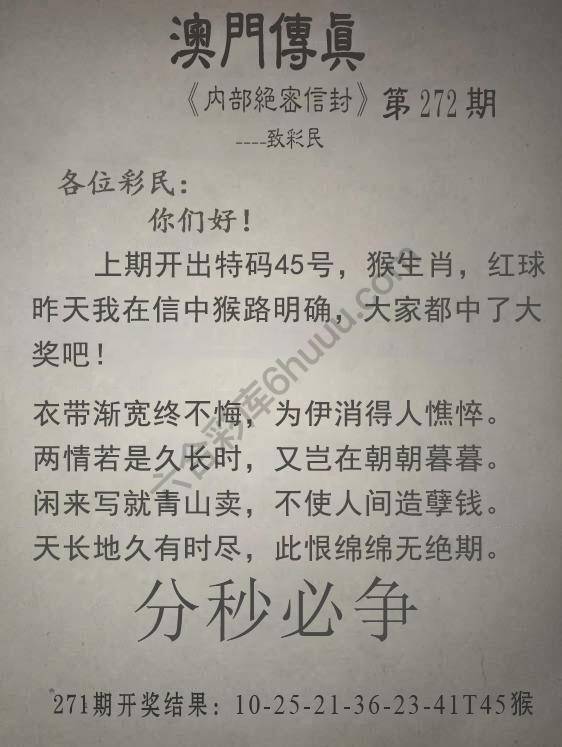 澳門傳眞
《内部絕密信封》第272期
----致彩民
各位彩民：
你们好！
上期开出特码45号，猴生肖，红球
昨天我在信中猴路明确，大家都中了大
奖吧！
衣带渐宽终不悔，为伊消得人憔悴。
两情若是久长时，又岂在朝朝暮暮。
闲来写就青山卖，不使人间造孽钱。
天长地久有时尽，此恨绵绵无绝期。
分秒必争
271期开奖结果：10-25-21-36-23-41T45猴
六合彩库6huuu.com